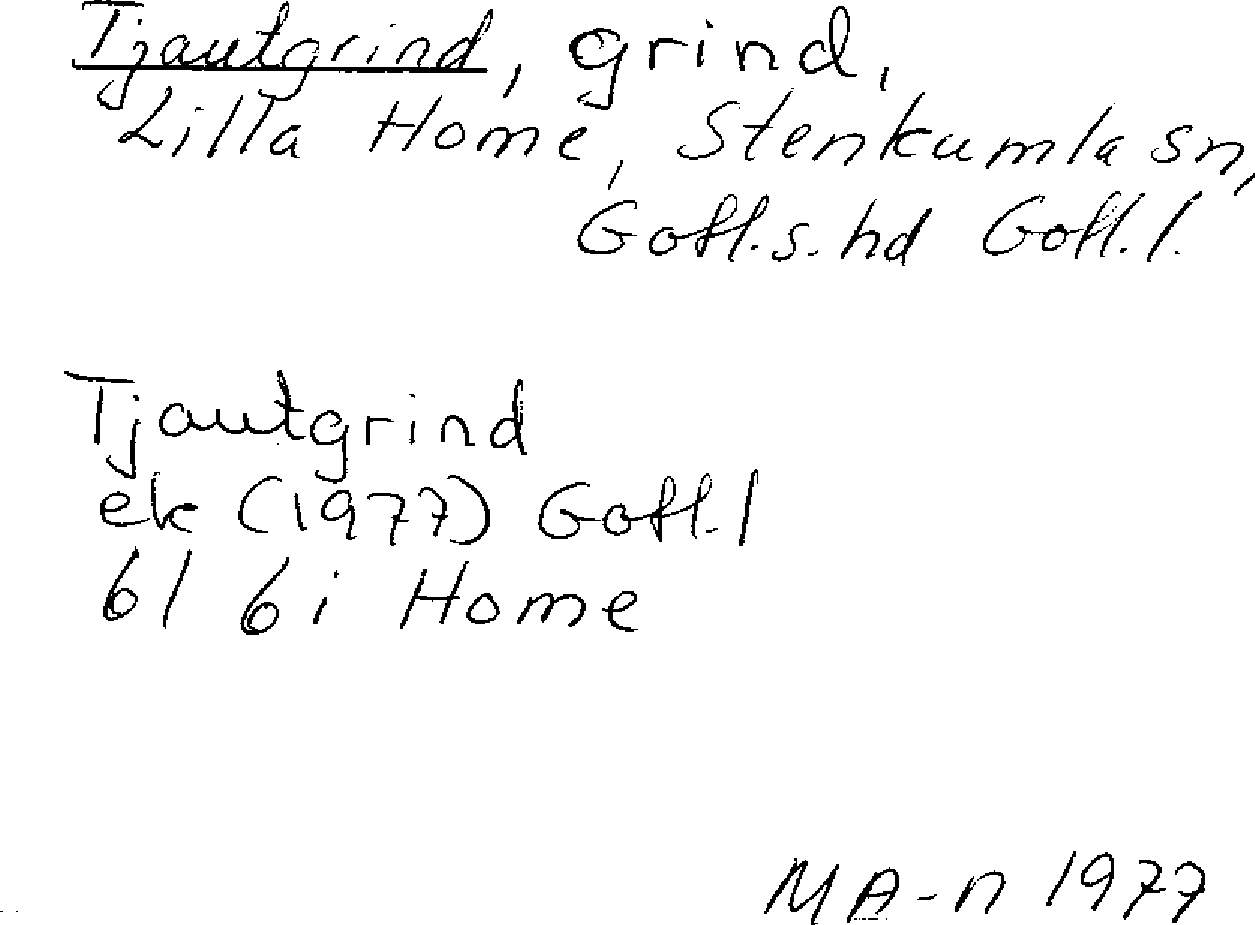 Tjautgrind, grind,
Lilla Home, Stenkumla sn,
Gotl.s.hd Gotl.l.
Tjautgrind
ek (1977) Gotl.l
6I 6i Home
MA-n 1977